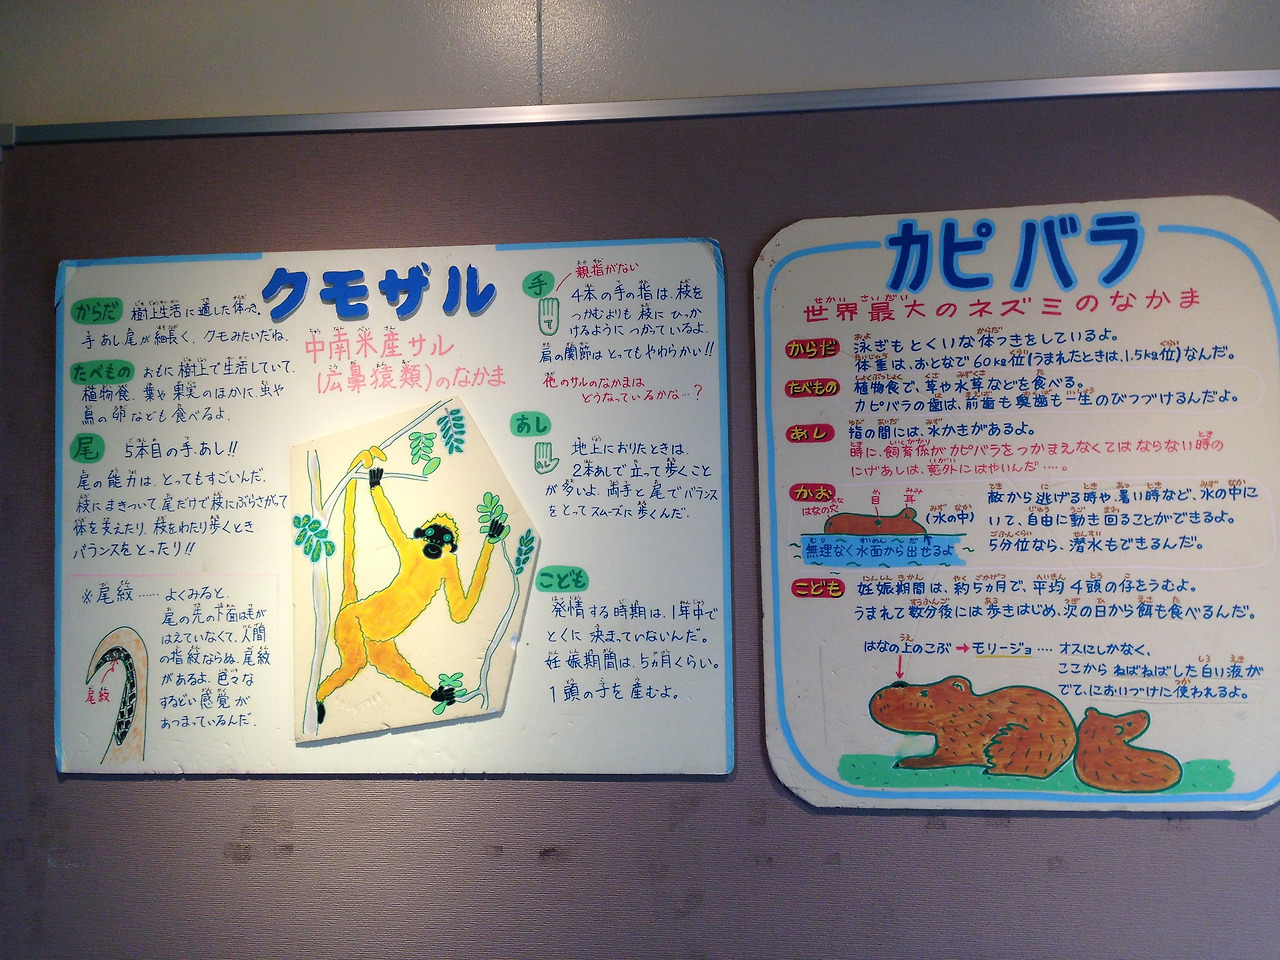 クモザル
中南米産サル
(広鼻猿類)のなかま
からだ 樹上生活に適した体つき。
手あし尾が細長く、クモみたいだね。
たべもの おもに樹上で生活していて、
植物食。葉や果実のほかに、虫や
鳥の卵なども食べるよ。
尾 5本目の手、あし!!
尾の能力は、とってもすごいんだ。
枝にまきついて、尾だけで枝にぶらさがって
体を支えたり、枝をわたり歩くとき
バランスをとったり!!
※尾紋……よくみると、
尾の先の下面は毛が
はえていなくて、人間
の指紋ならぬ、尾紋
があるよ。色々な
するどい感覚が
あつまっているんだ。
尾紋
手 親指がない
4本の手の指は、枝を
つかむよりも枝にひっか
けるようにつかっているよ。
肩の関節はとってもやわらかい!!
他のサルのなかまは
どうなっているかな…?
あし
地上におりたときは、
2本あしで立って歩くこと
が多いよ。両手と尾でバランス
をとってスムーズに歩くんだ。
こども
発情する時期は、1年中で
とくに決まっていないんだ。
妊娠期間は、5ヵ月くらい。
1頭の子を産むよ。
カピバラ
世界最大のネズミのなかま
からだ 泳ぎもとくいな体つきをしているよ。
体重は、おとなで60kg位(うまれたときは、1.5kg位)なんだ。
たべもの 植物食で、草や水草などを食べる。
カピバラの歯は、前歯も奥歯も一生のびつづけるんだよ。
あし 指の間には、水かきがあるよ。
時に、飼育係がカピバラをつかまえなくてはならない時の
にげあしは、意外にはやいんだ…。
かお はなの穴 目 耳
(水の中)
無理なく水面から出せるよ
敵から逃げる時や、暑い時など、水の中に
いて、自由に動き回ることができるよ。
5分位なら、潜水もできるんだ。
こども 妊娠期間は、約5ヵ月で、平均4頭の仔をうむよ。
うまれて数分後には歩きはじめ、次の日から餌も食べるんだ。
はなの上のこぶ→モリージョ…. オスにしかなく、
ここからねばねばした白い液が
でて、においづけに使われるよ。